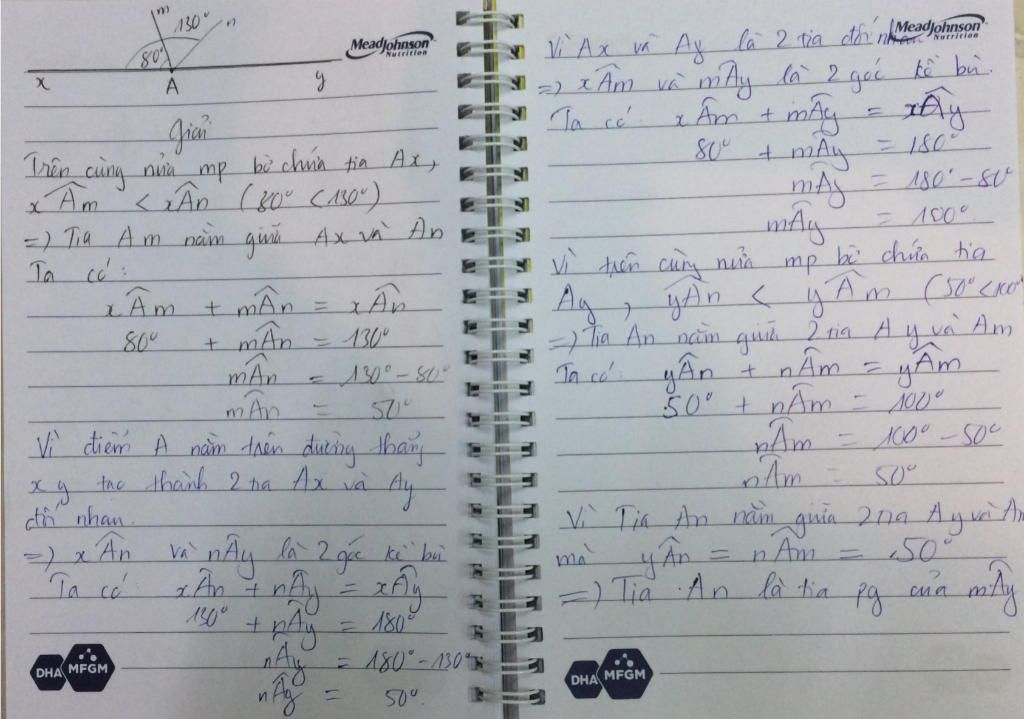 m 130° n
80°
x A y
MeadJohnson
Nutrition
Giải
Trên cùng nửa mp bờ chứa tia Ax,
xÂm < xÂn (80° < 130°)
=) Tia Am nằm giữa Ax và An
Ta có:
xÂm + mÂn = xÂn
80° + mÂn = 130°
mÂn = 130° - 80°
mÂn = 50°
Vì điểm A nằm trên đường thẳng
xy tạo thành 2 tia Ax và Ay
đối nhau.
=) xÂn và nÂy là 2 góc kề bù
Ta có xÂn + nÂy = xÂy
130° + nÂy = 180°
nÂy = 180° - 130°
nÂy = 50°.
DHA MFGM
MeadJohnson
Nutrition
Vì Ax và Ay là 2 tia đối nhau
=) xÂm và mÂy là 2 góc kề bù.
Ta có: xÂm + mÂy = xÂy
80° + mÂy = 180°
mÂy = 180° - 80°
mÂy = 100°.
Vì trên cùng nửa mp bờ chứa tia
Ay, yÂn < yÂm (50° < 100°
=) Tia An nằm giữa 2 tia Ay và Am
Ta có: yÂn + nÂm = yÂm
50° + nÂm = 100°
nÂm = 100° - 50°
nÂm = 50°
Vì Tia An nằm giữa 2 tia Ay và Am
mà yÂn = nÂm = 50°
=) Tia An là tia pg của mÂy
DHA MFGM